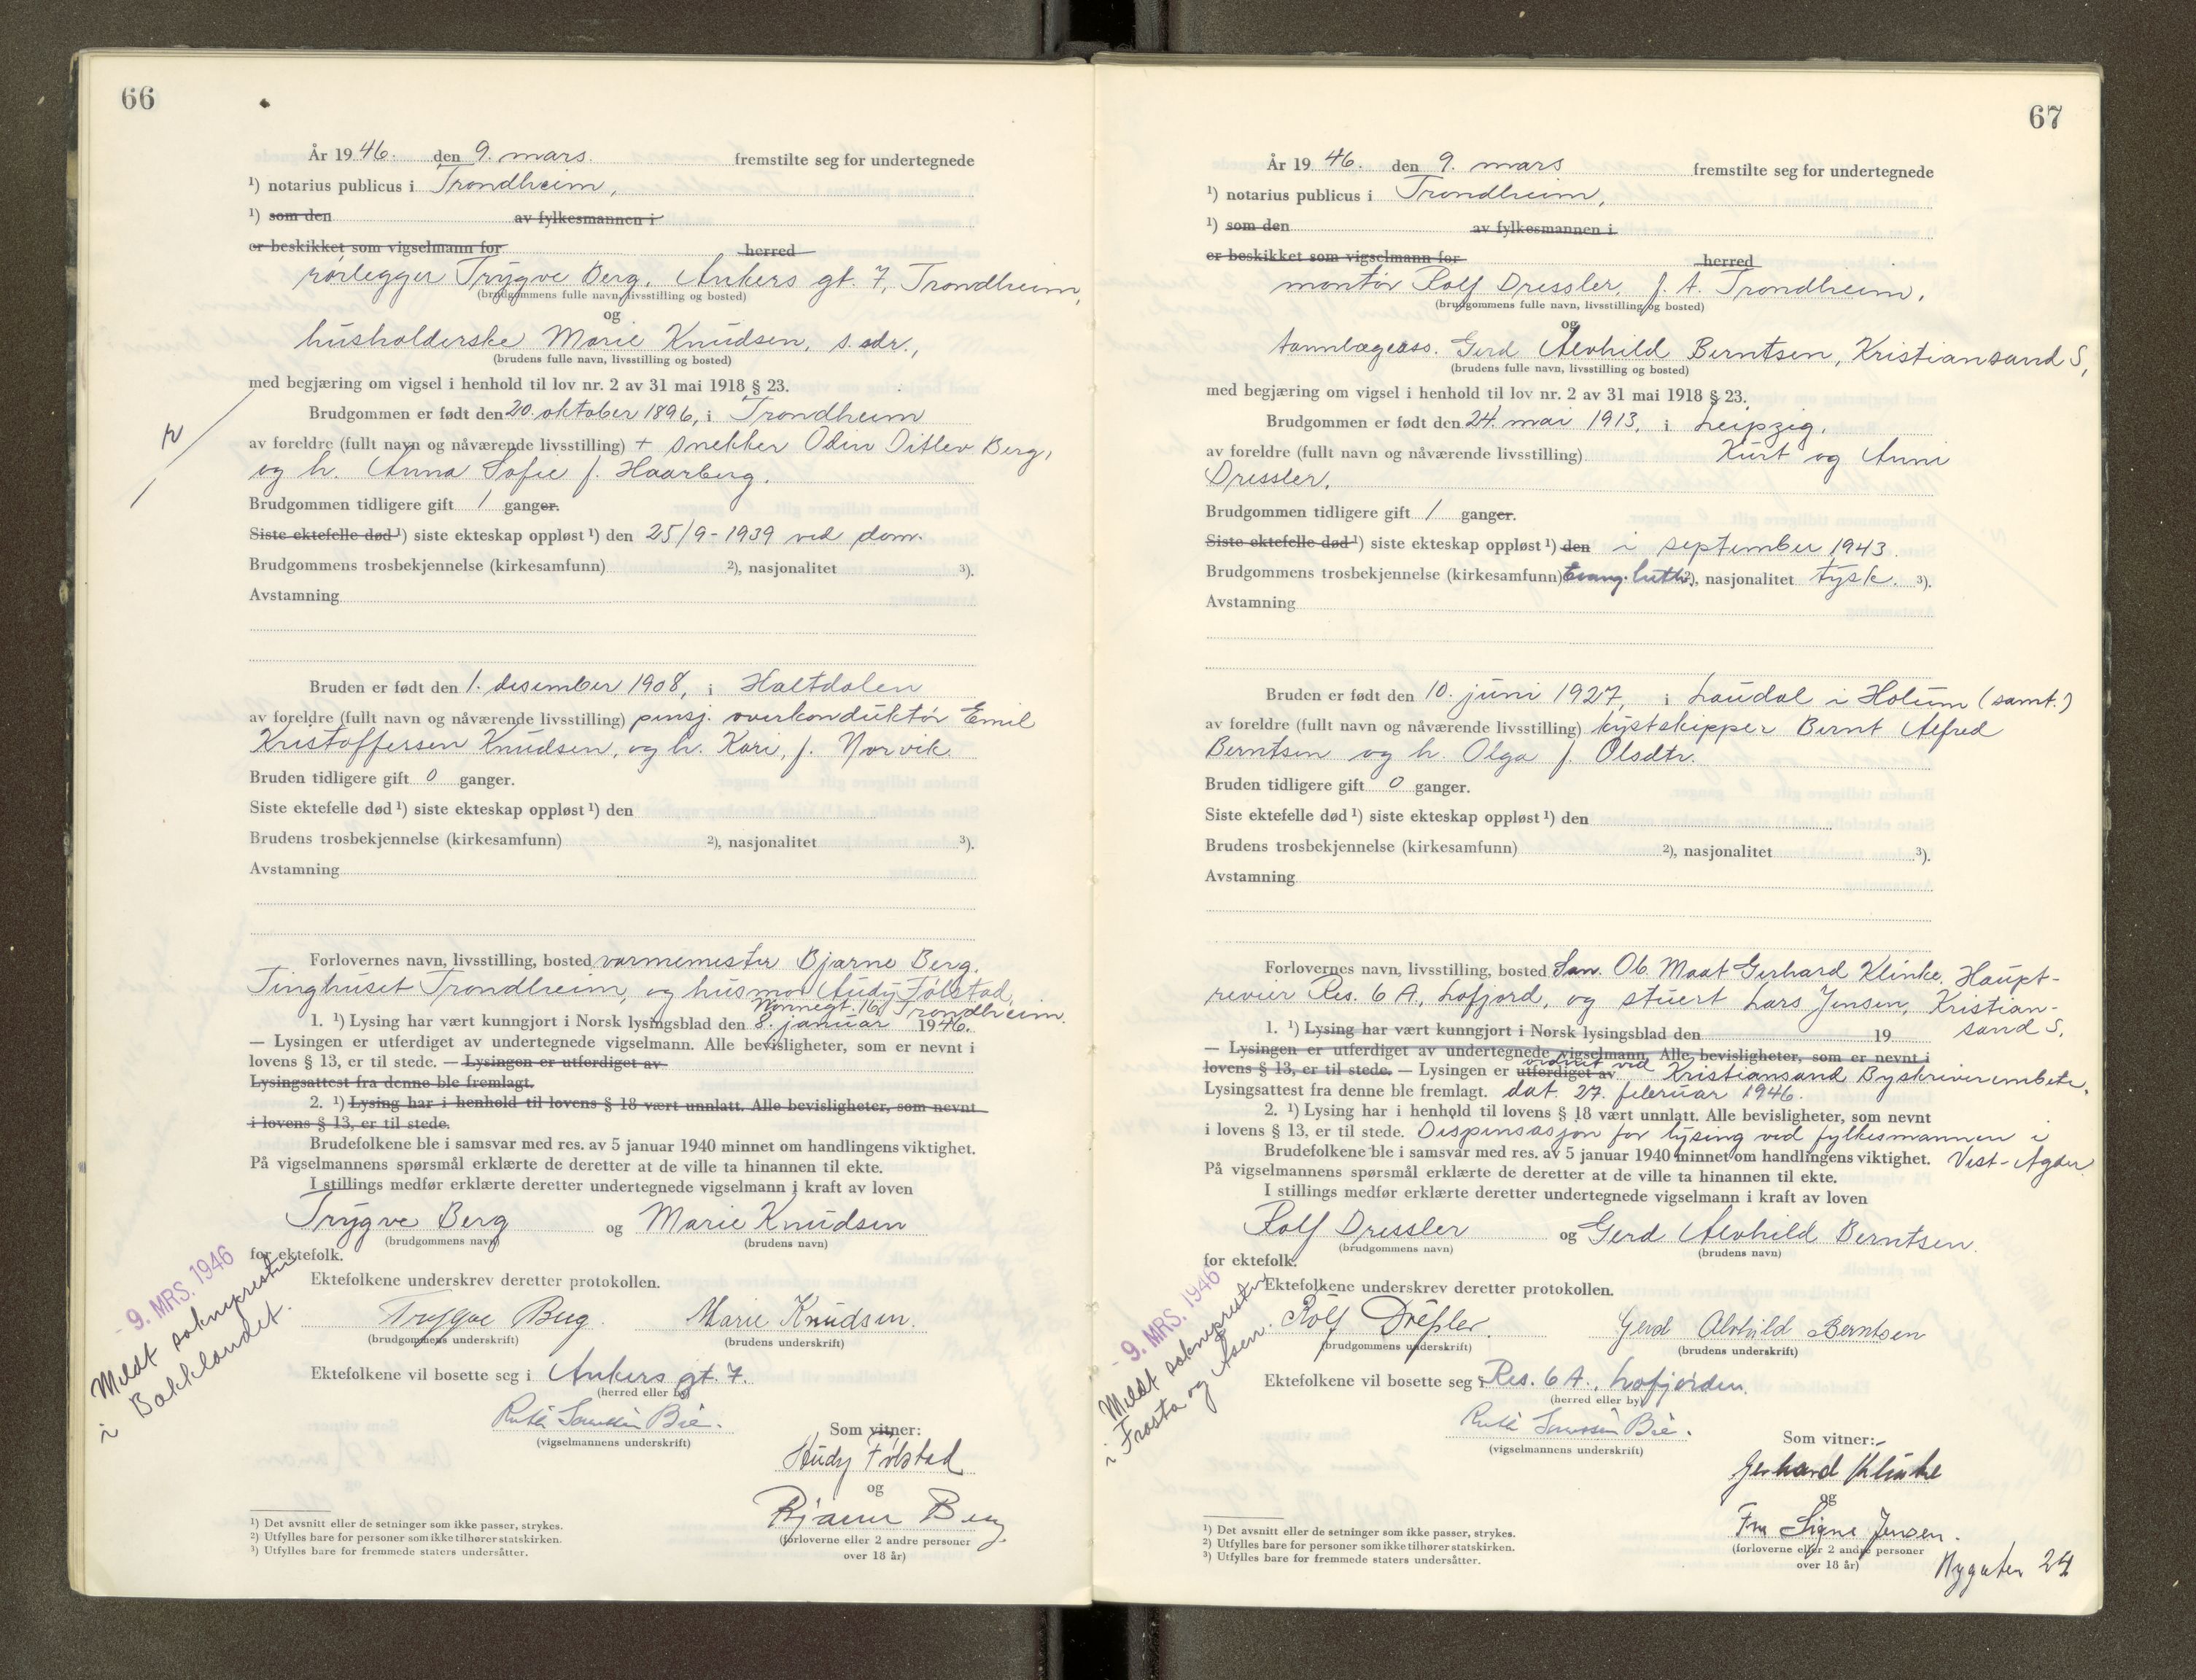 66
År 1946. den 9. mars. fremstilte seg for undertegnede
¹) notarius publicus i Trondheim,
¹) som den av fylkesmannen i
er beskikket som vigselmann for herred
rørlegger Trygve Berg, Ankers gt. 7, Trondheim,
(brudgommens fulle navn, livsstilling og bosted)
og
husholderske Marie Knudsen, s. adr.,
(brudens fulle navn, livsstilling og bosted)
med begjæring om vigsel i henhold til lov nr. 2 av 31 mai 1918 § 23.
Brudgommen er født den 20. oktober 1896, i Trondheim
av foreldre (fullt navn og nåværende livsstilling) + snekker Odin Ditlev Berg,
og h. Anna Sofie f. Haarberg.
Brudgommen tidligere gift 1 ganger.
Siste ektefelle død ¹) siste ekteskap oppløst ¹) den 25/9-1939 ved dom.
Brudgommens trosbekjennelse (kirkesamfunn) ²), nasjonalitet ³).
Avstamning
Bruden er født den 1. desember 1908, i Haltdalen
av foreldre (fullt navn og nåværende livsstilling) pensj. overkonduktør Emil
Kristoffersen Knudsen, og h. Kari, f. Norvik
Bruden tidligere gift 0 ganger.
Siste ektefelle død ¹) siste ekteskap oppløst ¹) den
Brudens trosbekjennelse (kirkesamfunn) ²), nasjonalitet ³).
Avstamning
Forlovernes navn, livsstilling, bosted varmemester Bjarne Berg,
Tinghuset Trondheim, og husmor Audy Følstad,
Nonnegt. 16, Trondheim.
1. ¹) Lysing har vært kunngjort i Norsk lysingsblad den 8. januar 1946.
— Lysingen er utferdiget av undertegnede vigselmann. Alle bevisligheter, som er nevnt i
lovens § 13, er til stede. — Lysingen er utferdiget av
Lysingsattest fra denne ble fremlagt.
2. ¹) Lysing har i henhold til lovens § 18 vært unnlatt. Alle bevisligheter, som nevnt
i lovens § 13, er til stede.
Brudefolkene ble i samsvar med res. av 5 januar 1940 minnet om handlingens viktighet.
På vigselmannens spørsmål erklærte de deretter at de ville ta hinannen til ekte.
I stillings medfør erklærte deretter undertegnede vigselmann i kraft av loven
Trygve Berg og Marie Knudsen
(brudgommens navn) (brudens navn)
for ektefolk.
Ektefolkene underskrev deretter protokollen.
Trygve Berg. Marie Knudsen.
(brudgommens underskrift) (brudens underskrift)
Ektefolkene vil bosette seg i Ankers gt. 7.
(herred eller by)
(vigselmannens underskrift)
Som vitner:
Audy Følstad
og
Bjarne Berg
(forloverne eller 2 andre personer
over 18 år)
- 9. MRS. 1946
Meldt soknepresten
i Bakklandet.
¹) Det avsnitt eller de setninger som ikke passer, strykes.
²) Utfylles bare for personer som ikke tilhører statskirken.
³) Utfylles bare for fremmede staters undersåtter.
67
År 1946. den 9. mars fremstilte seg for undertegnede
¹) notarius publicus i Trondheim,
¹) som den av fylkesmannen i
er beskikket som vigselmann for herred
montør Rolf Dressler, f. A. Trondheim,
(brudgommens fulle navn, livsstilling og bosted)
og
tannlægeass. Gerd Alvhild Berntsen, Kristiansand S,
(brudens fulle navn, livsstilling og bosted)
med begjæring om vigsel i henhold til lov nr. 2 av 31 mai 1918 § 23.
Brudgommen er født den 24. mai 1913, i Leipzig,
av foreldre (fullt navn og nåværende livsstilling) Kurt og Anni
Dressler.
Brudgommen tidligere gift 1 ganger.
Siste ektefelle død ¹) siste ekteskap oppløst ¹) den i september 1943.
Brudgommens trosbekjennelse (kirkesamfunn) Evang. luth. ²), nasjonalitet tysk. ³).
Avstamning
Bruden er født den 10. juni 1927, i Laudal i Holum (samt.)
av foreldre (fullt navn og nåværende livsstilling) kystskipper Bernt Alfred
Berntsen og h. Olga f. Olsdtr.
Bruden tidligere gift 0 ganger.
Siste ektefelle død ¹) siste ekteskap oppløst ¹) den
Brudens trosbekjennelse (kirkesamfunn) ²), nasjonalitet ³).
Avstamning
Forlovernes navn, livsstilling, bosted San. Ob. Maat Gerhard Klinke, Haupt-
revier Res. 6 A, Lofjord, og stuert Lars Jensen, Kristian-
sand S.
1. ¹) Lysing har vært kunngjort i Norsk lysingsblad den 19
— Lysingen er utferdiget av undertegnede vigselmann. Alle bevisligheter, som er nevnt i
lovens § 13, er til stede. — Lysingen er utferdiget av ordnet ved Kristiansand Byskriverembete.
Lysingsattest fra denne ble fremlagt. dat. 27. februar 1946.
2. ¹) Lysing har i henhold til lovens § 18 vært unnlatt. Alle bevisligheter, som nevnt
i lovens § 13, er til stede. Dispensasjon for lysing ved fylkesmannen i
Vest-Agder
Brudefolkene ble i samsvar med res. av 5 januar 1940 minnet om handlingens viktighet.
På vigselmannens spørsmål erklærte de deretter at de ville ta hinannen til ekte.
I stillings medfør erklærte deretter undertegnede vigselmann i kraft av loven
Rolf Dressler og Gerd Alvhild Berntsen.
(brudgommens navn) (brudens navn)
for ektefolk.
Ektefolkene underskrev deretter protokollen.
Rolf Dreßler. Gerd Alvhild Berntsen
(brudgommens underskrift) (brudens underskrift)
Ektefolkene vil bosette seg i Res. 6 A., Lofjorden.
(herred eller by)
(vigselmannens underskrift)
Som vitner:
Gerhard Klinke
og
Fru Signe Jensen.
(forloverne eller 2 andre personer
over 18 år)
Nygaten 24
- 9. MRS. 1946
Meldt soknepresten
i Frosta og Åsen.
¹) Det avsnitt eller de setninger som ikke passer, strykes.
²) Utfylles bare for personer som ikke tilhører statskirken.
³) Utfylles bare for fremmede staters undersåtter.